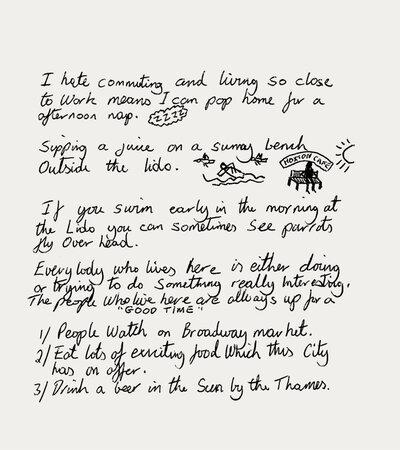 I hate commuting and living so close
to work means I can pop home for a
afternoon nap. ZZZZ
Sipping a juice on a sunny bench
Outside the lido.
HOXTON CAFE
If you swim early in the morning at
the Lido you can sometimes see parrots
fly Over head.
Everybody who lives here is either doing
or trying to do Something really Interesting.
The people who live here are always up for a
"GOOD TIME"
1/ People Watch on Broadway market.
2/ Eat lots of exciting food Which this City
has on offer.
3/ Drink a beer in the Sun by the Thames.